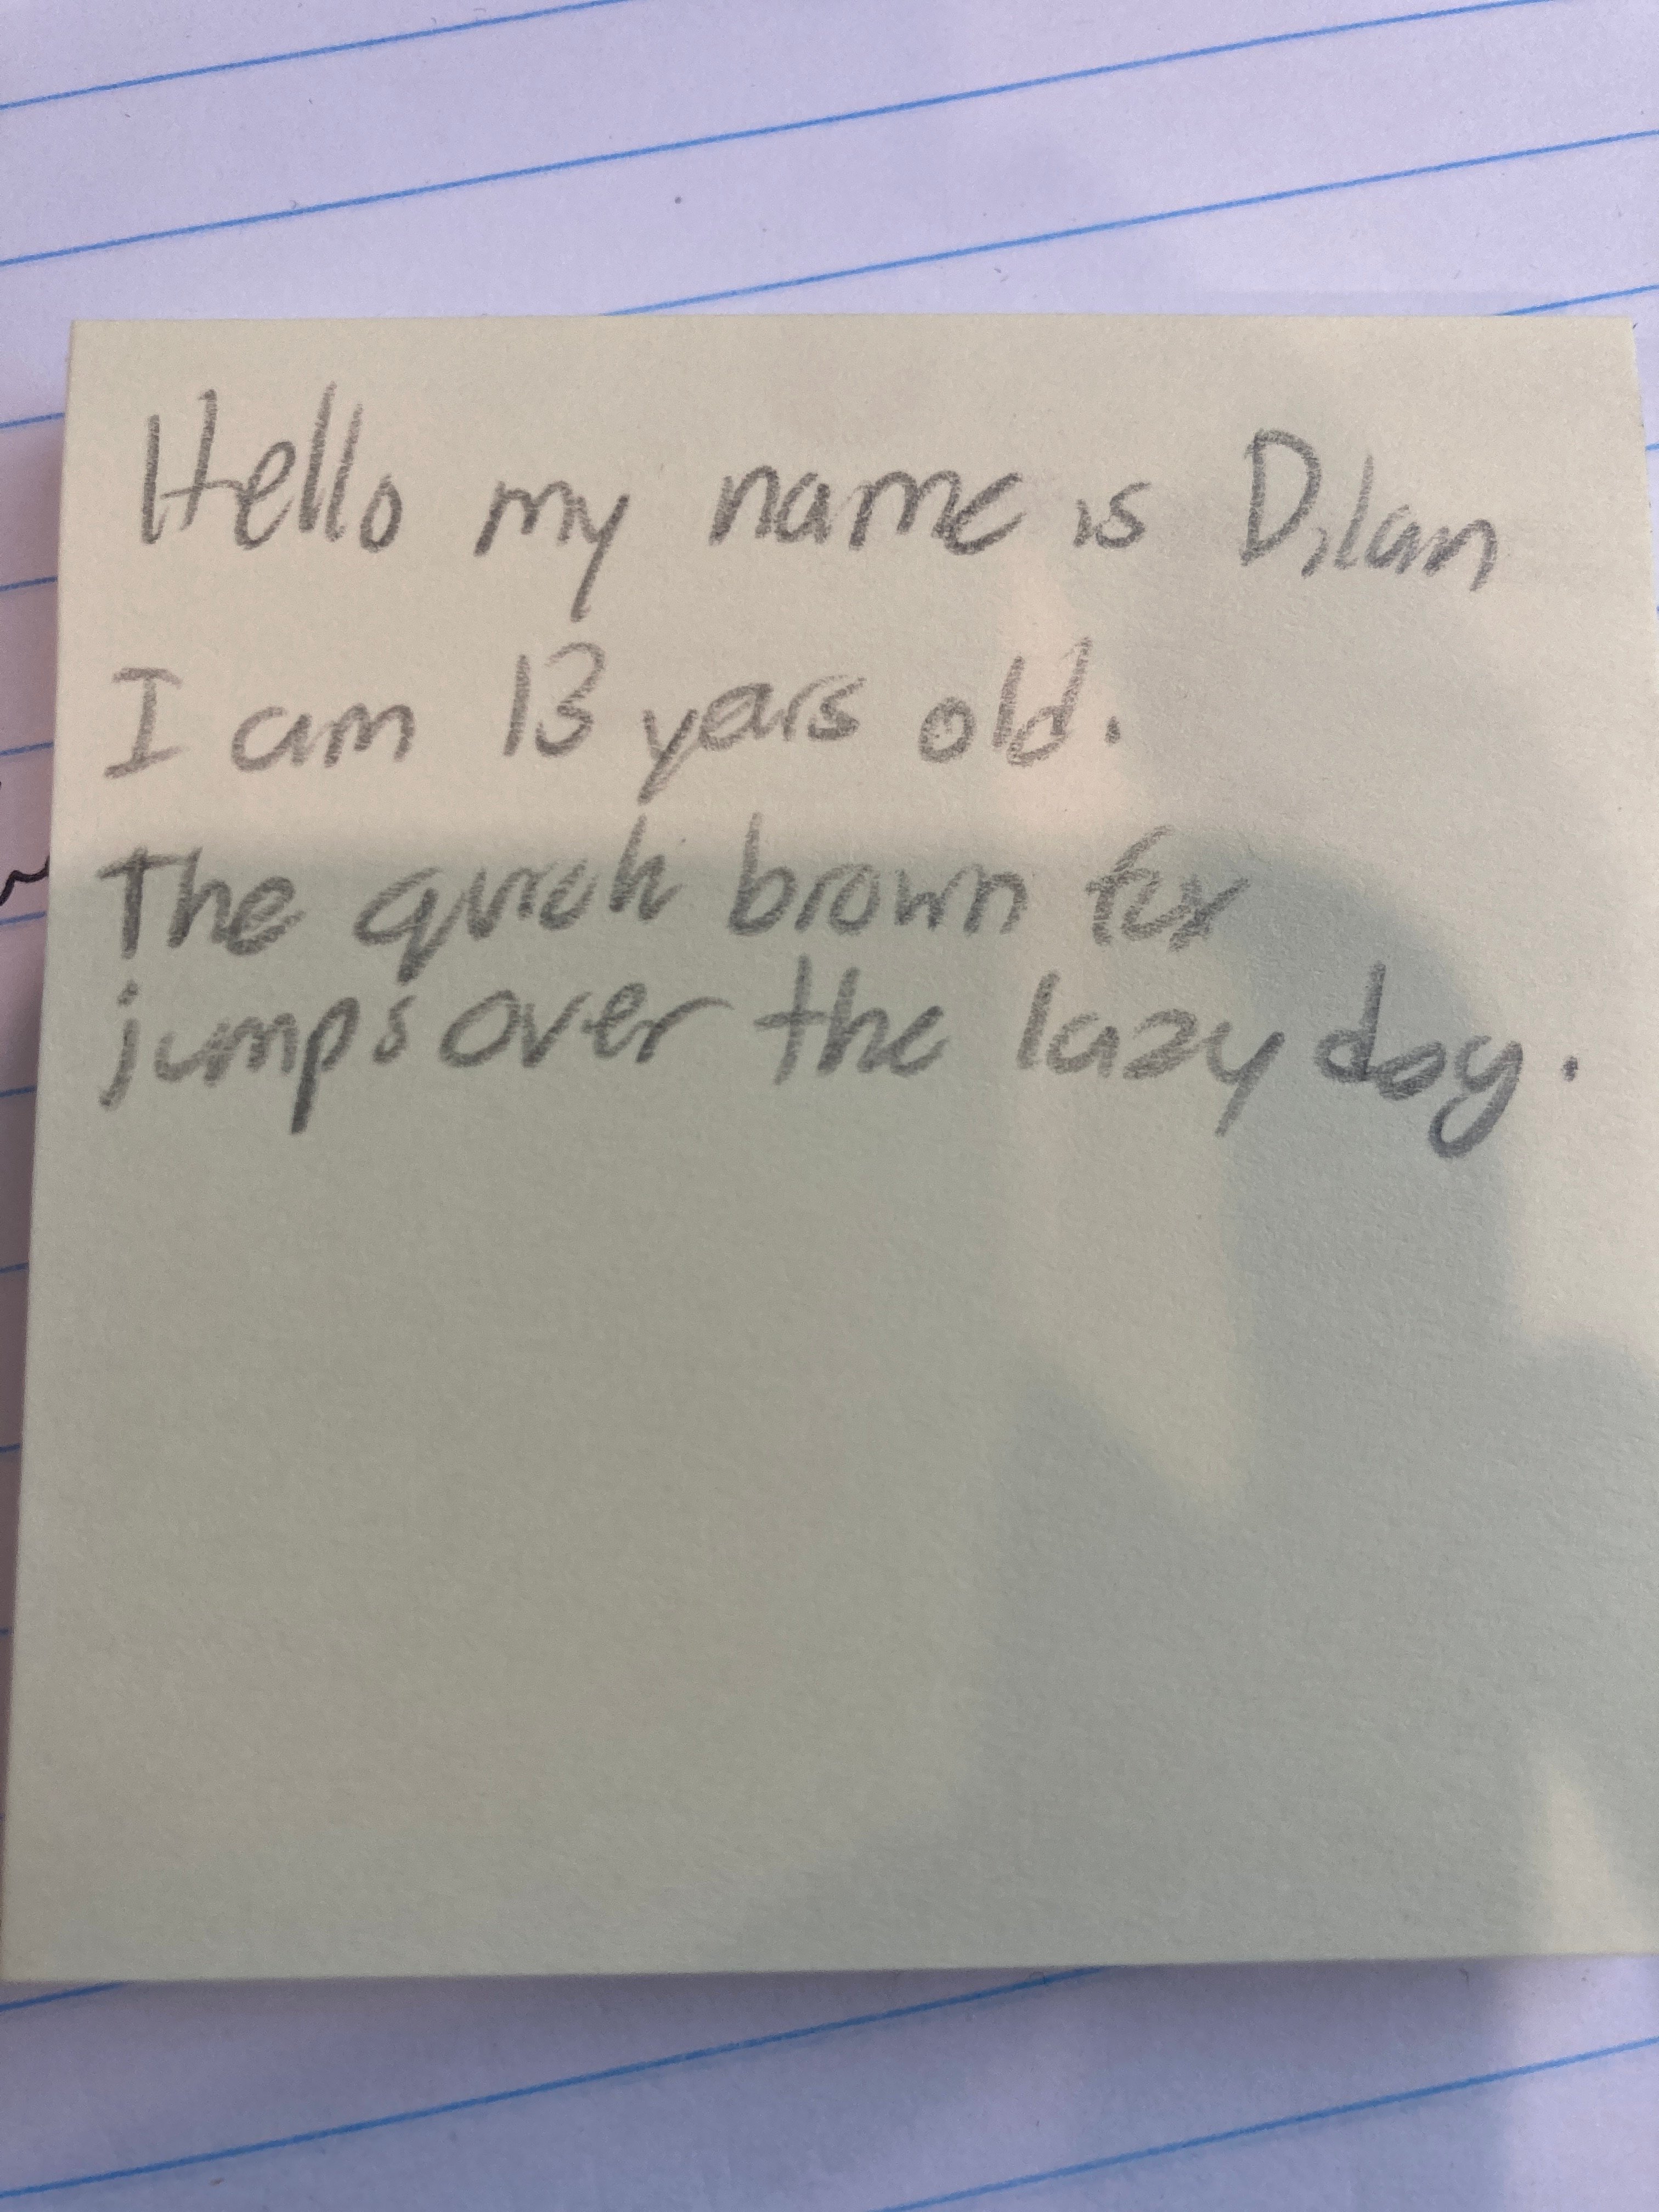 Hello my name is Dilan
I am 13 years old.
The quick brown fox
jumps over the lazy dog.